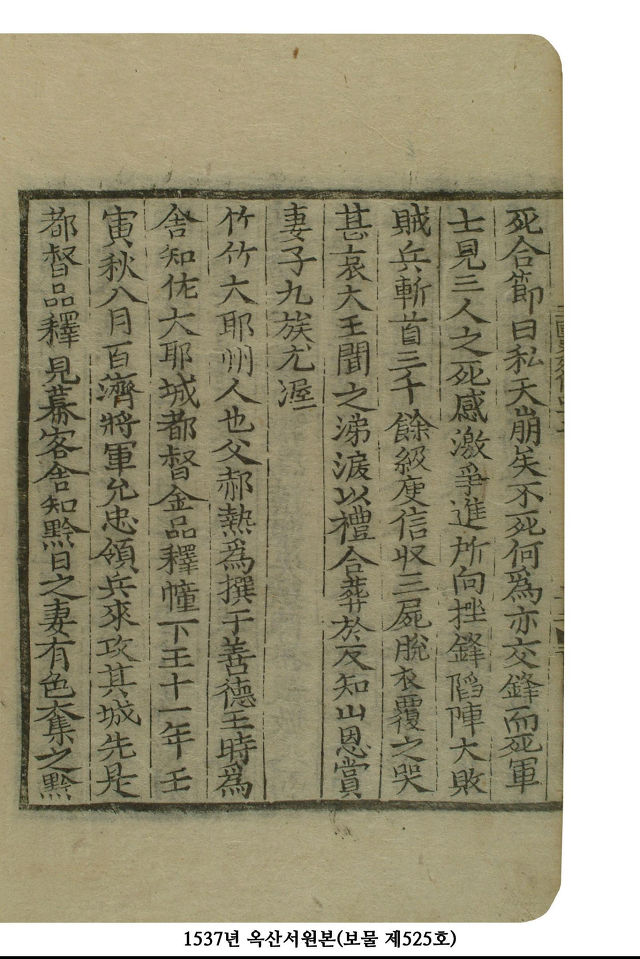 死合節曰私天崩矣不死何爲亦交鋒而死軍
士見三人之死感激爭進所向挫鋒陷陣大敗
賊兵斬首三千餘級庾信収三屍脫衣覆之哭
甚哀大王聞之涕淚以禮合葬於反知山恩賞
妻子九族尤渥
竹竹大耶州人也父郝熱爲撰干善德王時爲
舍知佐大耶城都督金品釋幢下王十一年壬
寅秋八月百濟將軍允忠領兵來攻其城先是
都督品釋見幕客舍知黔日之妻有色奪之黔
1537년 옥산서원본(보물 제525호)